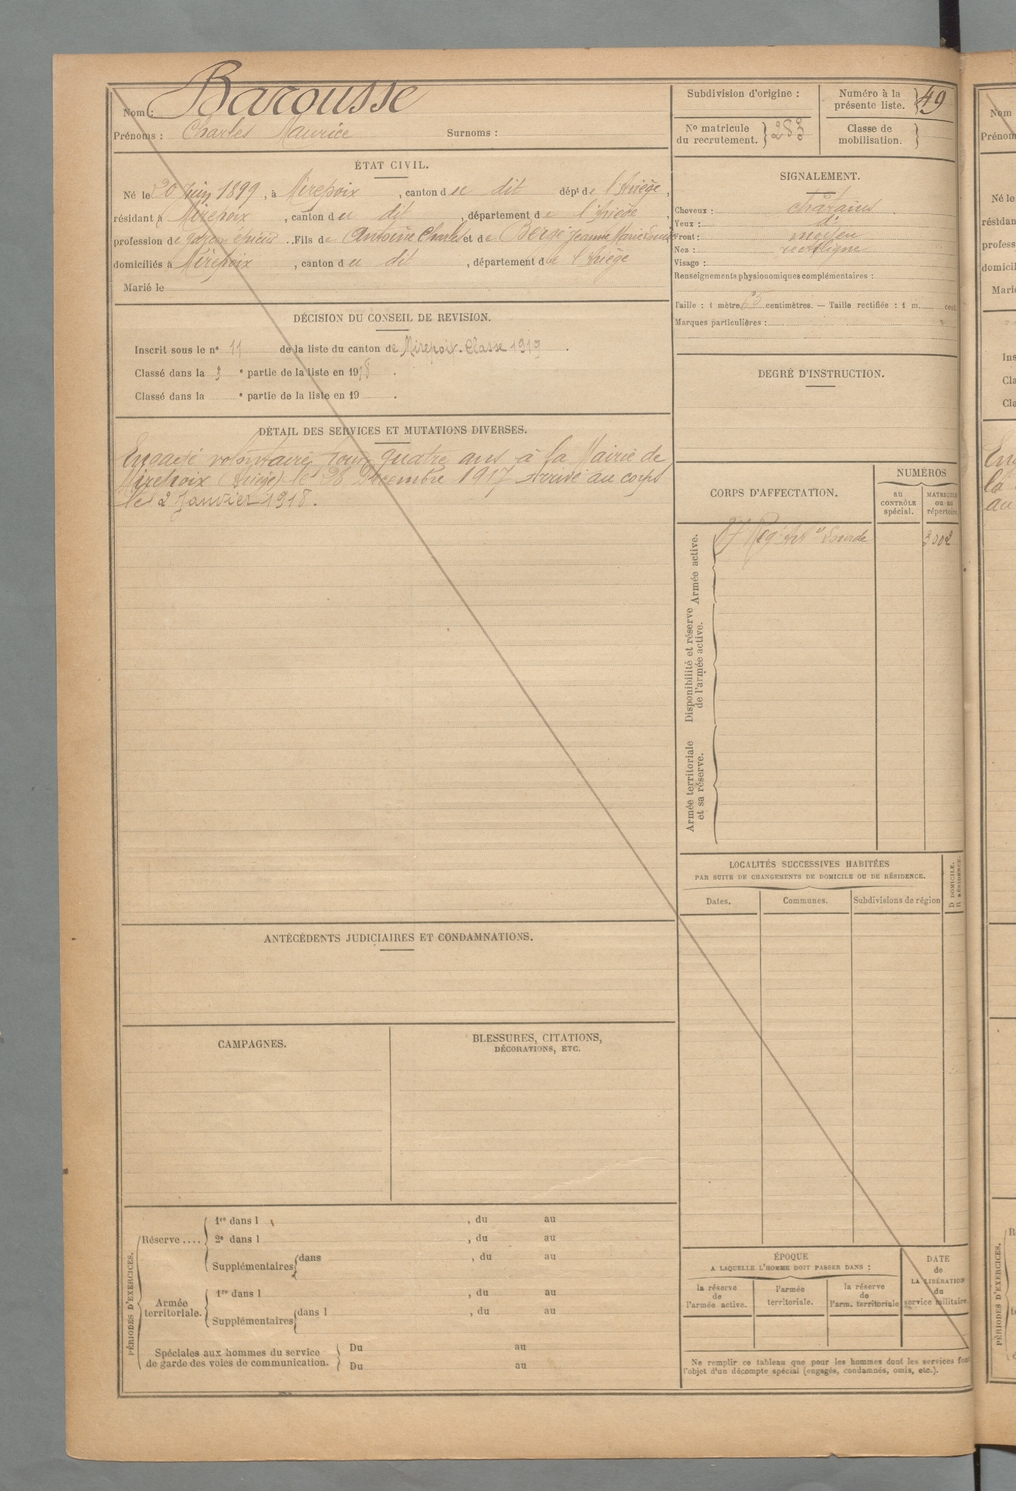 Nom : Barousse
Prénoms : Charles Maurice Surnoms :
ÉTAT CIVIL.
Né le 20 Juin 1899, à Mirepoix, canton du dit dépt de l'Ariège,
résidant à Mirepoix, canton du dit, département de l'Ariège,
profession de garçon épicier. Fils de Antoine Charles et de Jeanne Marie
domiciliés à Mirepoix, canton du dit, département de l'Ariège
Marié le
DÉCISION DU CONSEIL DE REVISION.
Inscrit sous le n° 11 de la liste du canton de Mirepoix. Classe 1919.
Classé dans la 3 e partie de la liste en 1918.
Classé dans la e partie de la liste en 19 .
DÉTAIL DES SERVICES ET MUTATIONS DIVERSES.
Engagé volontaire pour quatre ans à la Mairie de
Mirepoix (Ariège) le 28 Décembre 1917 arrivé au corps
le 2 Janvier 1918.
ANTÉCÉDENTS JUDICIAIRES ET CONDAMNATIONS.
CAMPAGNES.
BLESSURES, CITATIONS,
DÉCORATIONS, ETC.
PÉRIODES D'EXERCICES.
Réserve ....
1re dans l , du au
2e dans l , du au
Supplémentaires dans , du au
Armée
territoriale.
1re dans l , du au
Supplémentaires dans l , du au
Spéciales aux hommes du service
de garde des voies de communication.
Du au
Du au
Subdivision d'origine :
Numéro à la
présente liste. 49
N° matricule
du recrutement. 283
Classe de
mobilisation.
SIGNALEMENT.
Cheveux : châtains
Yeux : d°
Front : moyen
Nez : rectiligne
Visage :
Renseignements physionomiques complémentaires :
Taille : 1 mètre centimètres. — Taille rectifiée : 1 m. cent.
Marques particulières :
DEGRÉ D'INSTRUCTION.
CORPS D'AFFECTATION.
NUMÉROS
AU
CONTRÔLE
spécial.
MATRICULE
OU AU
répertoire
Armée active.
Régt Art ie Lourde
Disponibilité et réserve
de l'armée active.
Armée territoriale
et sa réserve.
LOCALITÉS SUCCESSIVES HABITÉES
PAR SUITE DE CHANGEMENTS DE DOMICILE OU DE RÉSIDENCE.
Dates. Communes. Subdivisions de région
D. DOMICILE.
R. RÉSIDENCE.
ÉPOQUE
A LAQUELLE L'HOMME DOIT PASSER DANS :
la réserve
de
l'armée active.
l'armée
territoriale.
la réserve
de
l'arm. territoriale
DATE
de
LA LIBÉRATION
du
service militaire.
Ne remplir ce tableau que pour les hommes dont les services font
l'objet d'un décompte spécial (engagés, condamnés, omis, etc.).